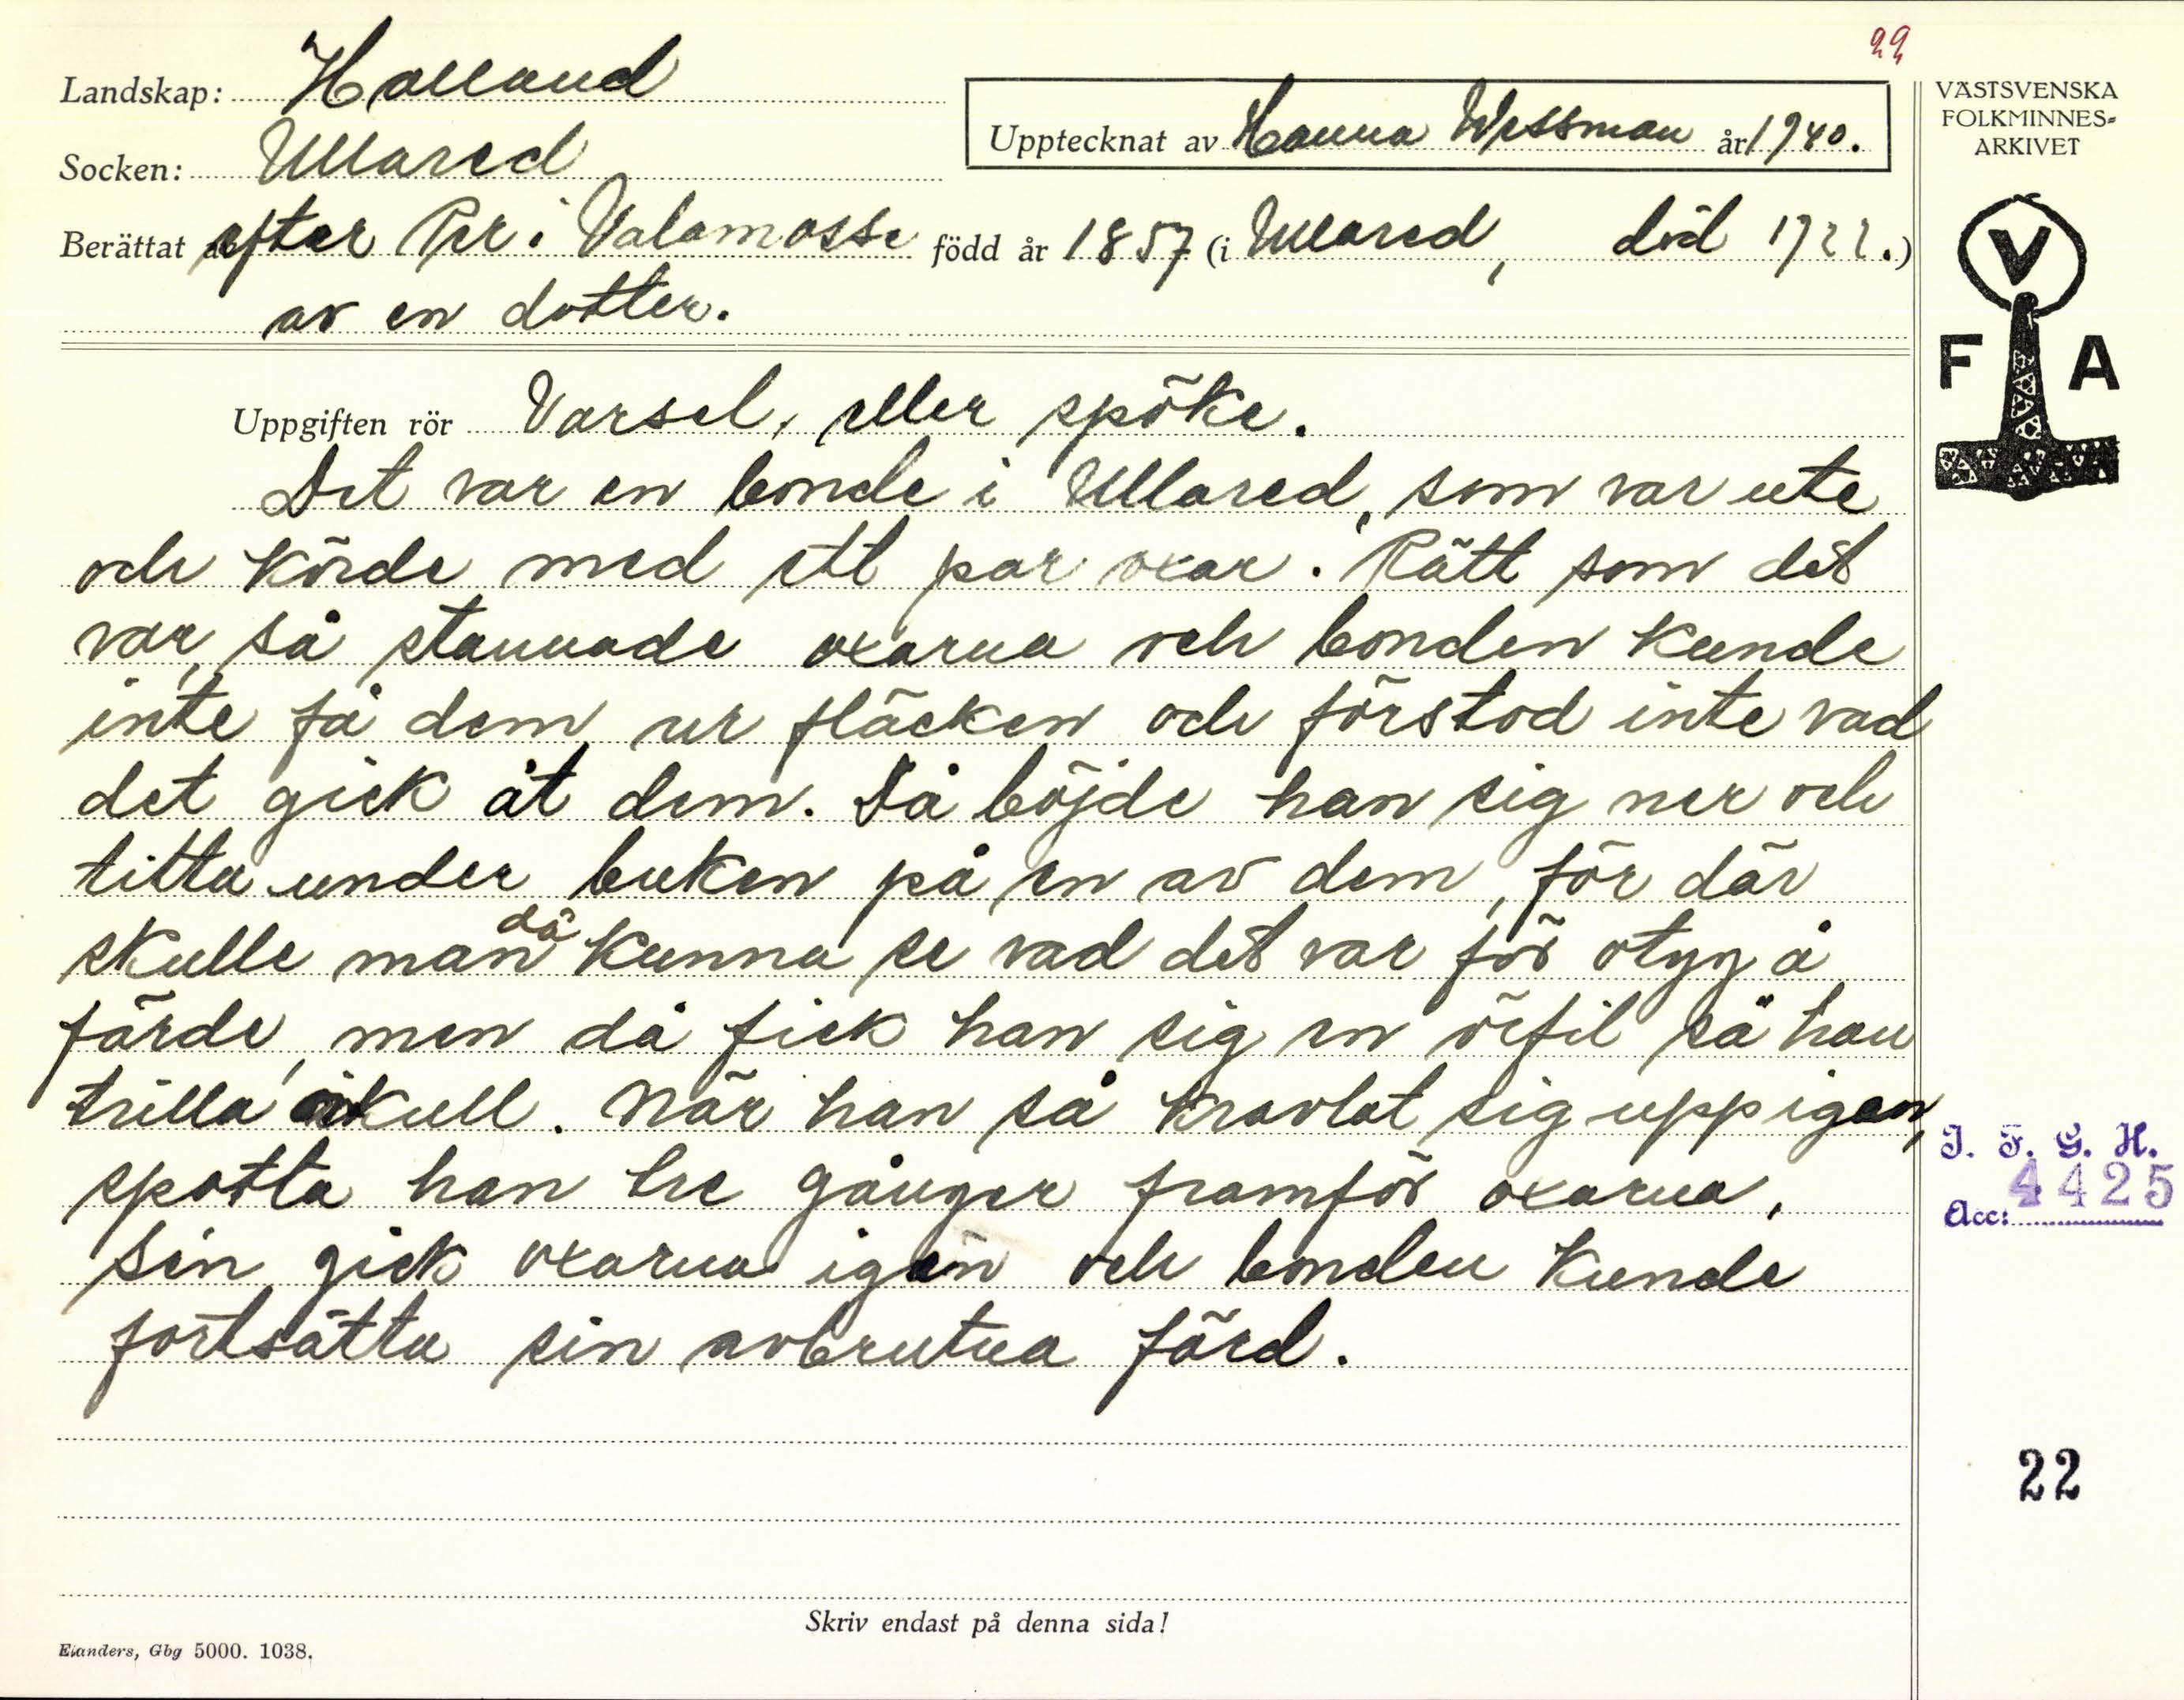 22
Landskap: Halland
Upptecknat av Hanna Wessman år 1940.
Socken: Ullared
Berättat efter Per i Valamosse född år 1857 (i Ullared, död 1922.)
av en dotter.
Uppgiften rör Varsel, eller spöke.
Det var en bonde i Ullared, som var ute
och körde med ett par oxar. Rätt som det
var, så stannade oxarna och bonden kunde
inte få dem ur fläcken och förstod inte vad
det gick åt dem. Då böjde han sig ner och
titta under buken på en av dem, för där
skulle man då kunna se vad det var för otyg å
färde, men då fick han sig en örfil så han
trilla ikull. När han så kravlat sig upp igen,
spotta han tre gånger framför oxarna,
sen gick oxarna igen och bonden kunde
fortsätta sin avbrutna färd.
Skriv endast på denna sida!
Elanders, Gbg 5000. 1038.
VÄSTSVENSKA
FOLKMINNES-
ARKIVET
V
F A
I. F. G. H.
4425
Acc:
22